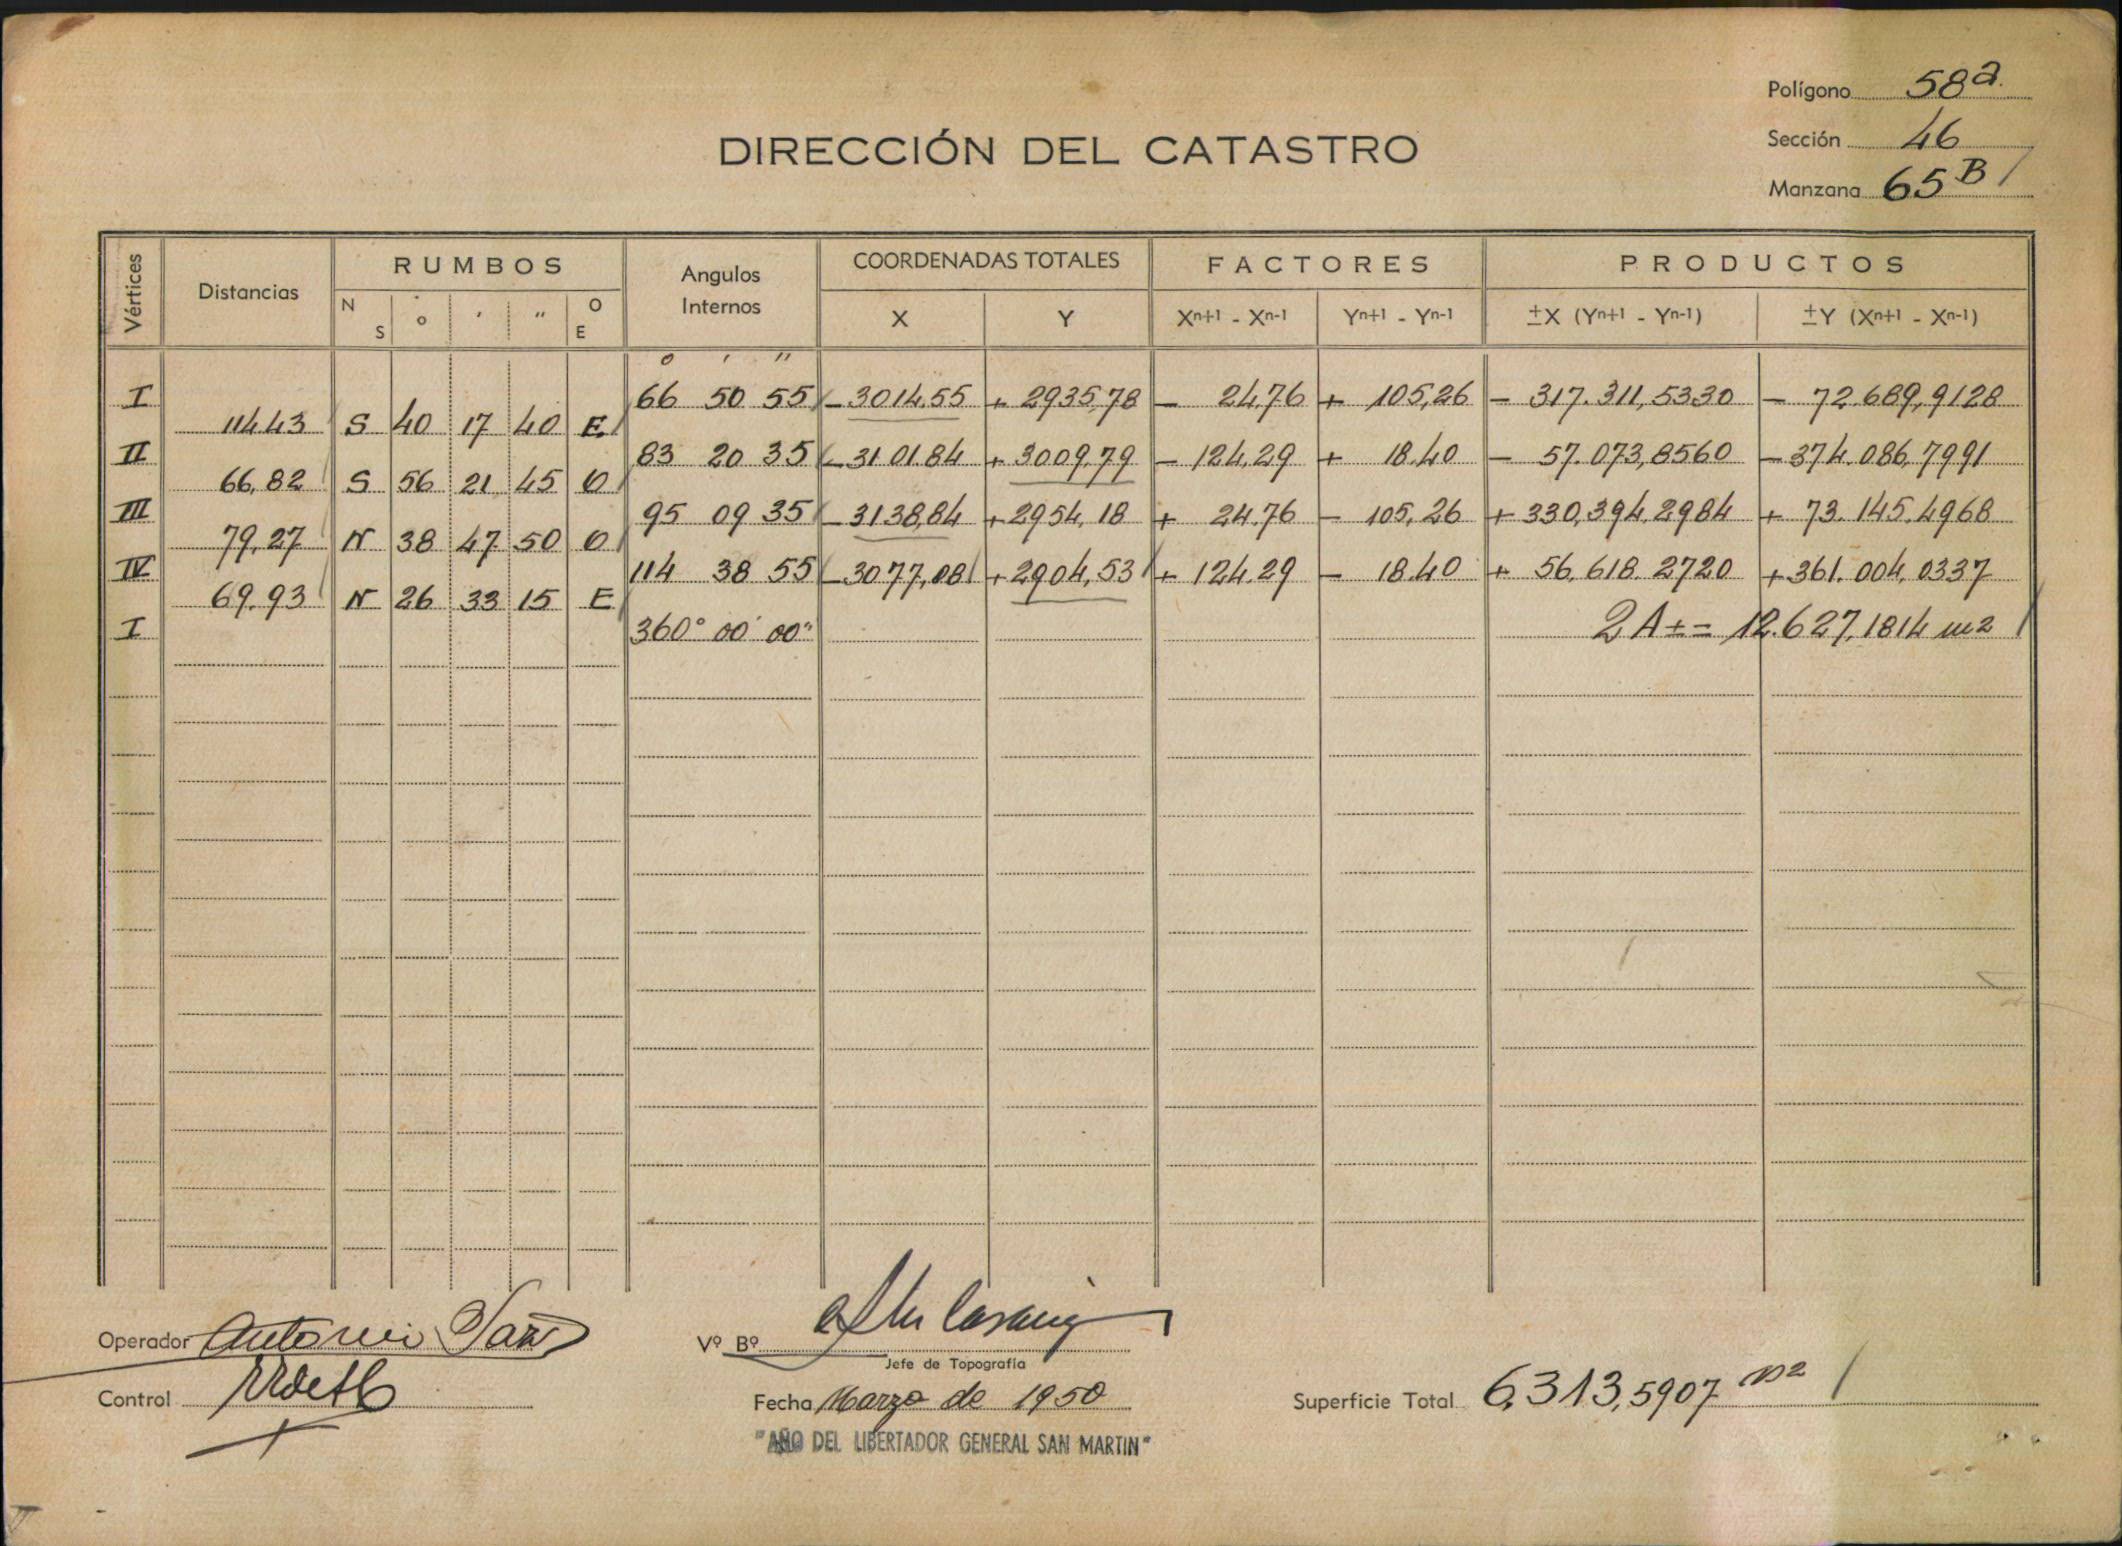 Polígono 58a
Sección 46
Manzana 65B /
DIRECCIÓN DEL CATASTRO
Vértices Distancias RUMBOS Angulos Internos COORDENADAS TOTALES FACTORES PRODUCTOS
N S ° ' " O E X Y Xn+1 - Xn-1 Yn+1 - Yn-1 ±X (Yn+1 - Yn-1) ±Y (Xn+1 - Xn-1)
° ' "
I 66 50 55 -3014,55 + 2935,78 - 24,76 + 105,26 - 317.311,5330 - 72.689,9128
114,43 S 40 17 40 E
II 83 20 35 -3101.84 +3009,79 - 124,29 + 18.40 - 57.073,8560 -374.086,7991
66,82 S 56 21 45 O
III 95 09 35 -3138,84 +2954,18 + 24.76 - 105,26 +330,394,2984 + 73.145,4968
79,27 N 38 47 50 O
IV 114 38 55 -3077,08 +2904,53 + 124.29 - 18.40 + 56,618.2720 +361.004,0337
69,93 N 26 33 15 E
I 360° 00' 00" 2A ± = 12.627,1814 m2 /
Operador Antonio
Vº Bº
Jefe de Topografía
Control
Fecha Marzo de 1950
Superficie Total 6.313,5907 m2 /
"AÑO DEL LIBERTADOR GENERAL SAN MARTIN"